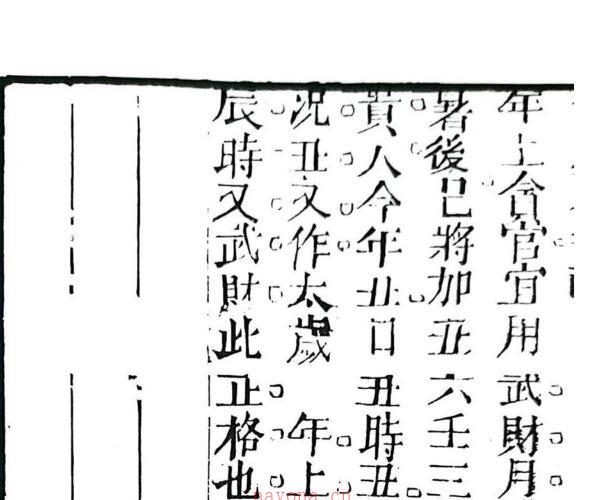 年上官宜用武財月
暑後巳將加丑六壬三
貴人今年丑日丑時丑
况丑又作太歲　年上
辰時又武財此正格也
nayona.cn